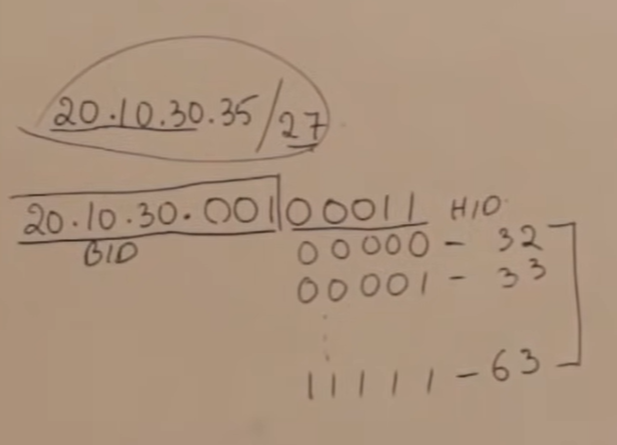 20.10.30.35/27
20.10.30.001|00011 HID
BID 00000 - 32
00001 - 33
11111 - 63